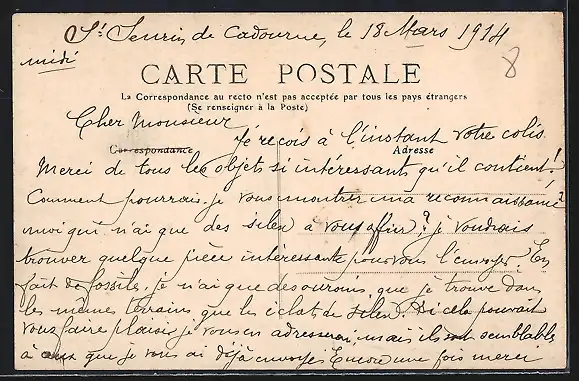 St Seurin de Cadourne, le 18 Mars 1914
midi
8
CARTE POSTALE
La Correspondance au recto n'est pas acceptée par tous les pays étrangers
(Se renseigner à la Poste)
Cher Monsieur
Je reçois à l'instant votre colis.
Correspondance
Adresse
Merci de tous les objets si intéressants qu'il contient!
Comment pourrais-je vous montrer ma reconnaissance
moi qui n'ai que des silex à vous offrir? je voudrais
trouver quelque pièce intéressante pour vous l'envoyer. En
fait de fossile, je n'ai que des oursins que je trouve dans
les mêmes terrains que les éclats de silex. Si cela pouvait
vous faire plaisir je vous en adresserai, mais ils sont semblables
à ceux que je vous ai déjà envoyés. Encore une fois merci